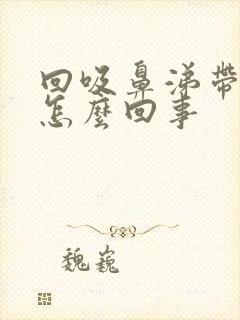 回吸鼻涕帶
怎麼回事
魏巍